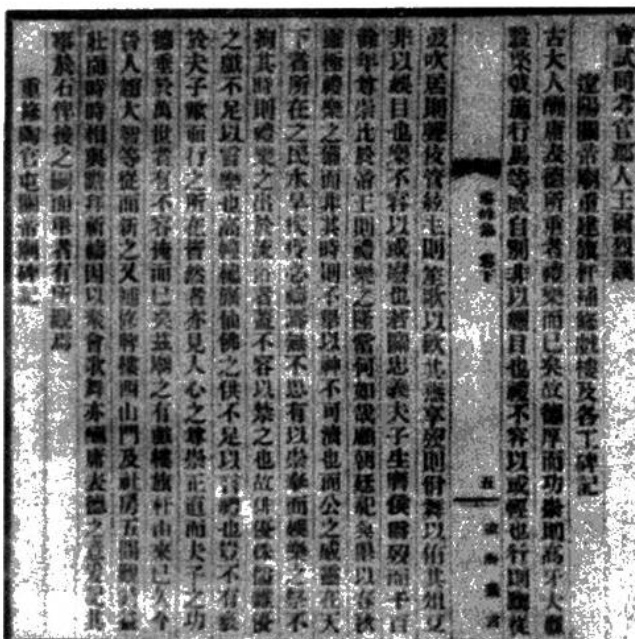 會試同考官郡人王爾烈譔
遼陽關帝廟重建旗杆補修戲樓及各工碑記
古大人酬庸表德所重者禮樂而已矣故德厚而功鉅則高牙大纛
設棨戟施行馬等威自別非以媚目也禮不容以或輕也行則
瑤峰集 卷下
五 遼海叢書
鼓吹居則管絃生則笙歌以飲其燕享歿則佾舞以侑其俎豆
非以娛目也樂不容以或廢也若關忠義夫子生膺侯爵歿而千百
餘年尊崇比於帝王則禮樂之隆當何如哉顧朝廷祀典限以春秋
雖極禮樂之備而非其時則不舉以神不可瀆也而公之威靈在天
下者所在之民水旱疾疫必禱焉無不思有以崇奉而娛樂之不
拘其時則禮樂之出於流俗者蓋不容以禁之也故俳優侏儒雜優
之戲不足以言樂也高幢旗仙佛之供不足以言禮也豈不有褻
於夫子歟而行之所在皆然者亦見人心之尊崇正直而夫子之功
德垂於萬世者有不容掩而已矣茲廟之有戲樓旗杆由來已久今
晉人趙大智等從而新之又補修碑樓兩山門及社房五間
社而時時相與瞻拜祈禱因以聚會歌舞亦酬庸表德之意爰記其
事於石俾後之嗣而葺者有所觀焉
重修陶官屯關帝廟碑記